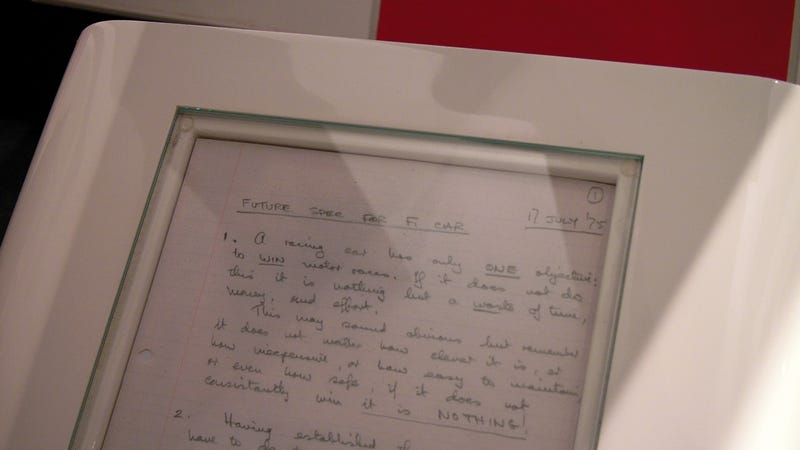 1
FUTURE SPEC FOR F1 CAR 17 JULY '75
1. A racing car has only ONE objective:
to WIN motor races. If it does not do
this it is nothing but a waste of time,
money, and effort.
This may sound obvious but remember
it does not matter how clever it is, or
how inexpensive, or how easy to maintain,
or even how safe, if it does not
consistantly win it is NOTHING!
2. Having established
have to do